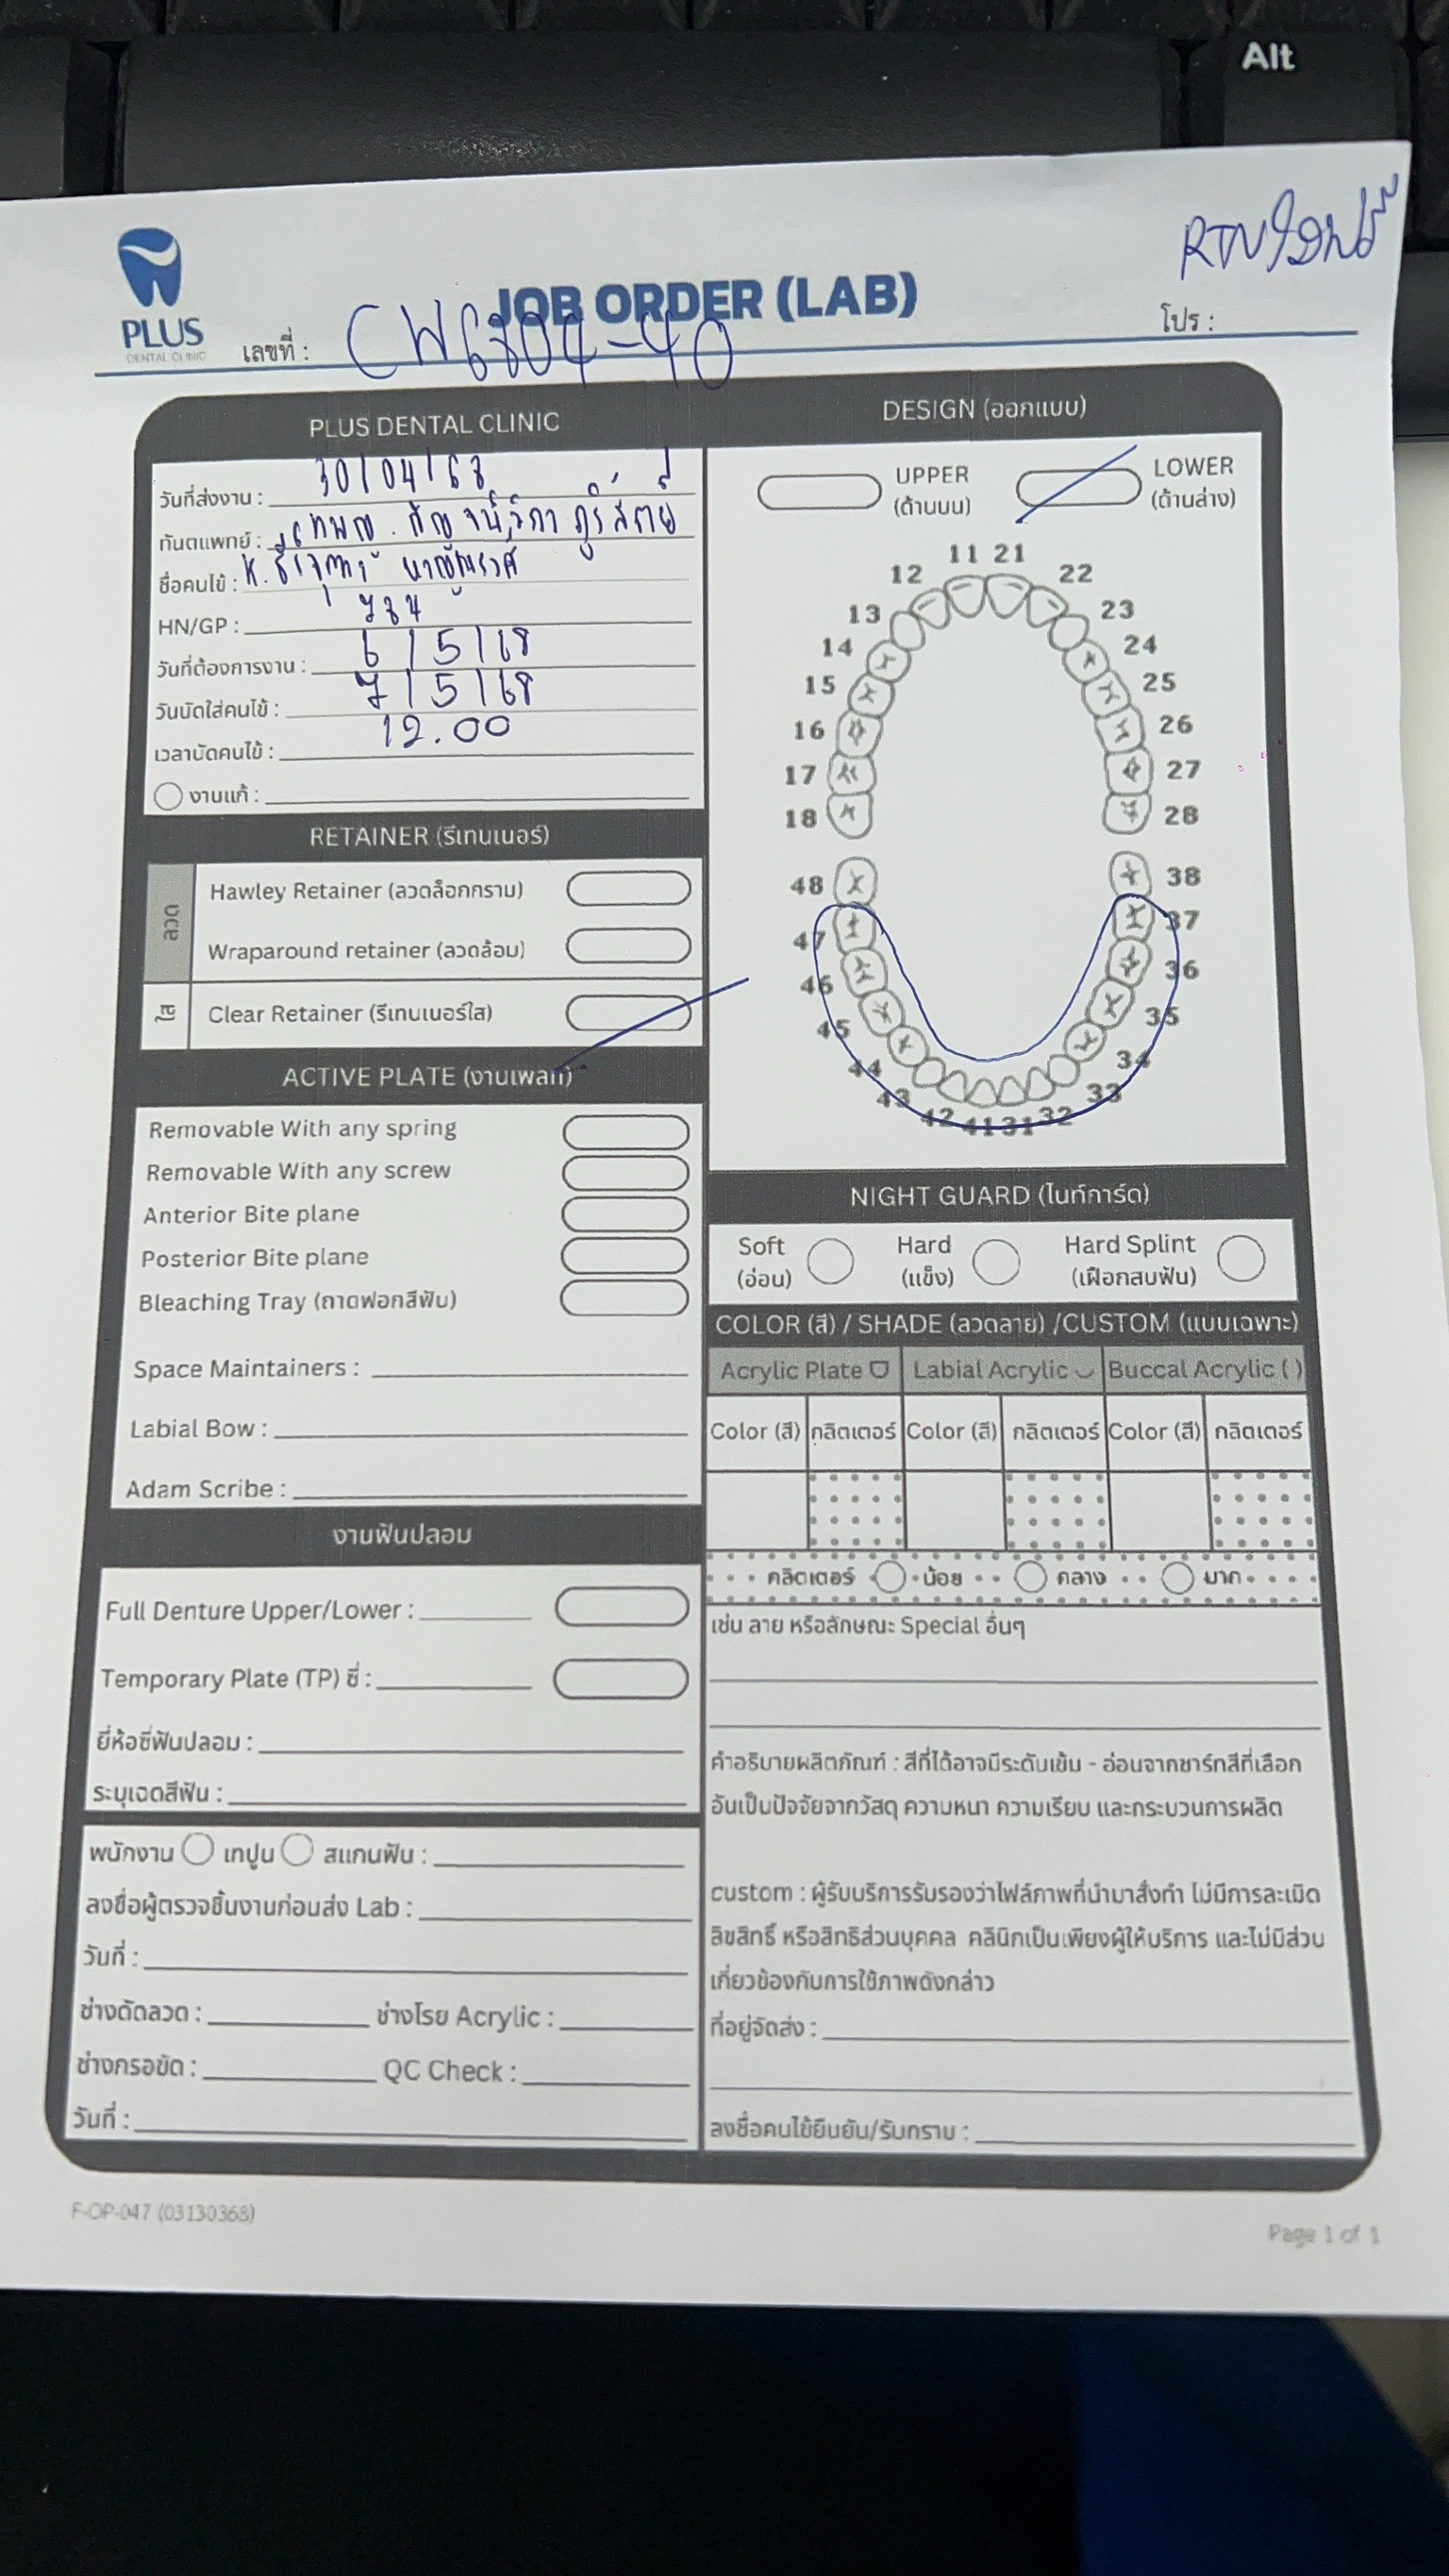 Alt
RTNใสฟรี
PLUS
DENTAL CLINIC
JOB ORDER (LAB)
เลขที่ : CW6804-40
โปร :
PLUS DENTAL CLINIC
วันที่ส่งงาน : 30/04/68
ทันตแพทย์ : ทพญ.
ชื่อคนไข้ : K.
HN/GP : 784
วันที่ต้องการงาน : 6/5/68
วันนัดใส่คนไข้ : 7/5/68
เวลานัดคนไข้ : 12.00
งานแก้ :
RETAINER (รีเทนเนอร์)
ลวด
Hawley Retainer (ลวดล็อกกราม)
Wraparound retainer (ลวดล้อม)
ใส
Clear Retainer (รีเทนเนอร์ใส)
ACTIVE PLATE (งานเพลท)
Removable With any spring
Removable With any screw
Anterior Bite plane
Posterior Bite plane
Bleaching Tray (ถาดฟอกสีฟัน)
Space Maintainers :
Labial Bow :
Adam Scribe :
งานฟันปลอม
Full Denture Upper/Lower :
Temporary Plate (TP) ซี่ :
ยี่ห้อซี่ฟันปลอม :
ระบุเฉดสีฟัน :
พนักงาน เทปูน สแกนฟัน :
ลงชื่อผู้ตรวจชิ้นงานก่อนส่ง Lab :
วันที่ :
ช่างดัดลวด : ช่างโรย Acrylic :
ช่างกรอขัด : QC Check :
วันที่ :
DESIGN (ออกแบบ)
UPPER
(ด้านบน)
LOWER
(ด้านล่าง)
11 21
12 22
13 23
14 24
15 25
16 26
17 27
18 28
48 38
47 37
46 36
45 35
44 34
43 33
42 41 31 32
NIGHT GUARD (ไนท์การ์ด)
Soft
(อ่อน)
Hard
(แข็ง)
Hard Splint
(เฝือกสบฟัน)
COLOR (สี) / SHADE (ลวดลาย) /CUSTOM (แบบเฉพาะ)
Acrylic Plate Labial Acrylic Buccal Acrylic ( )
Color (สี) กลิตเตอร์ Color (สี) กลิตเตอร์ Color (สี) กลิตเตอร์
กลิตเตอร์ น้อย กลาง มาก
เช่น ลาย หรือลักษณะ Special อื่นๆ
คำอธิบายผลิตภัณฑ์ : สีที่ได้อาจมีระดับเข้ม - อ่อนจากชาร์ทสีที่เลือก
อันเป็นปัจจัยจากวัสดุ ความหนา ความเรียบ และกระบวนการผลิต
custom : ผู้รับบริการรับรองว่าไฟล์ภาพที่นำมาสั่งทำ ไม่มีการละเมิด
ลิขสิทธิ์ หรือสิทธิส่วนบุคคล คลินิกเป็นเพียงผู้ให้บริการ และไม่มีส่วน
เกี่ยวข้องกับการใช้ภาพดังกล่าว
ที่อยู่จัดส่ง :
ลงชื่อคนไข้ยืนยัน/รับทราบ :
F-OP-047 (03130368)
Page 1 of 1